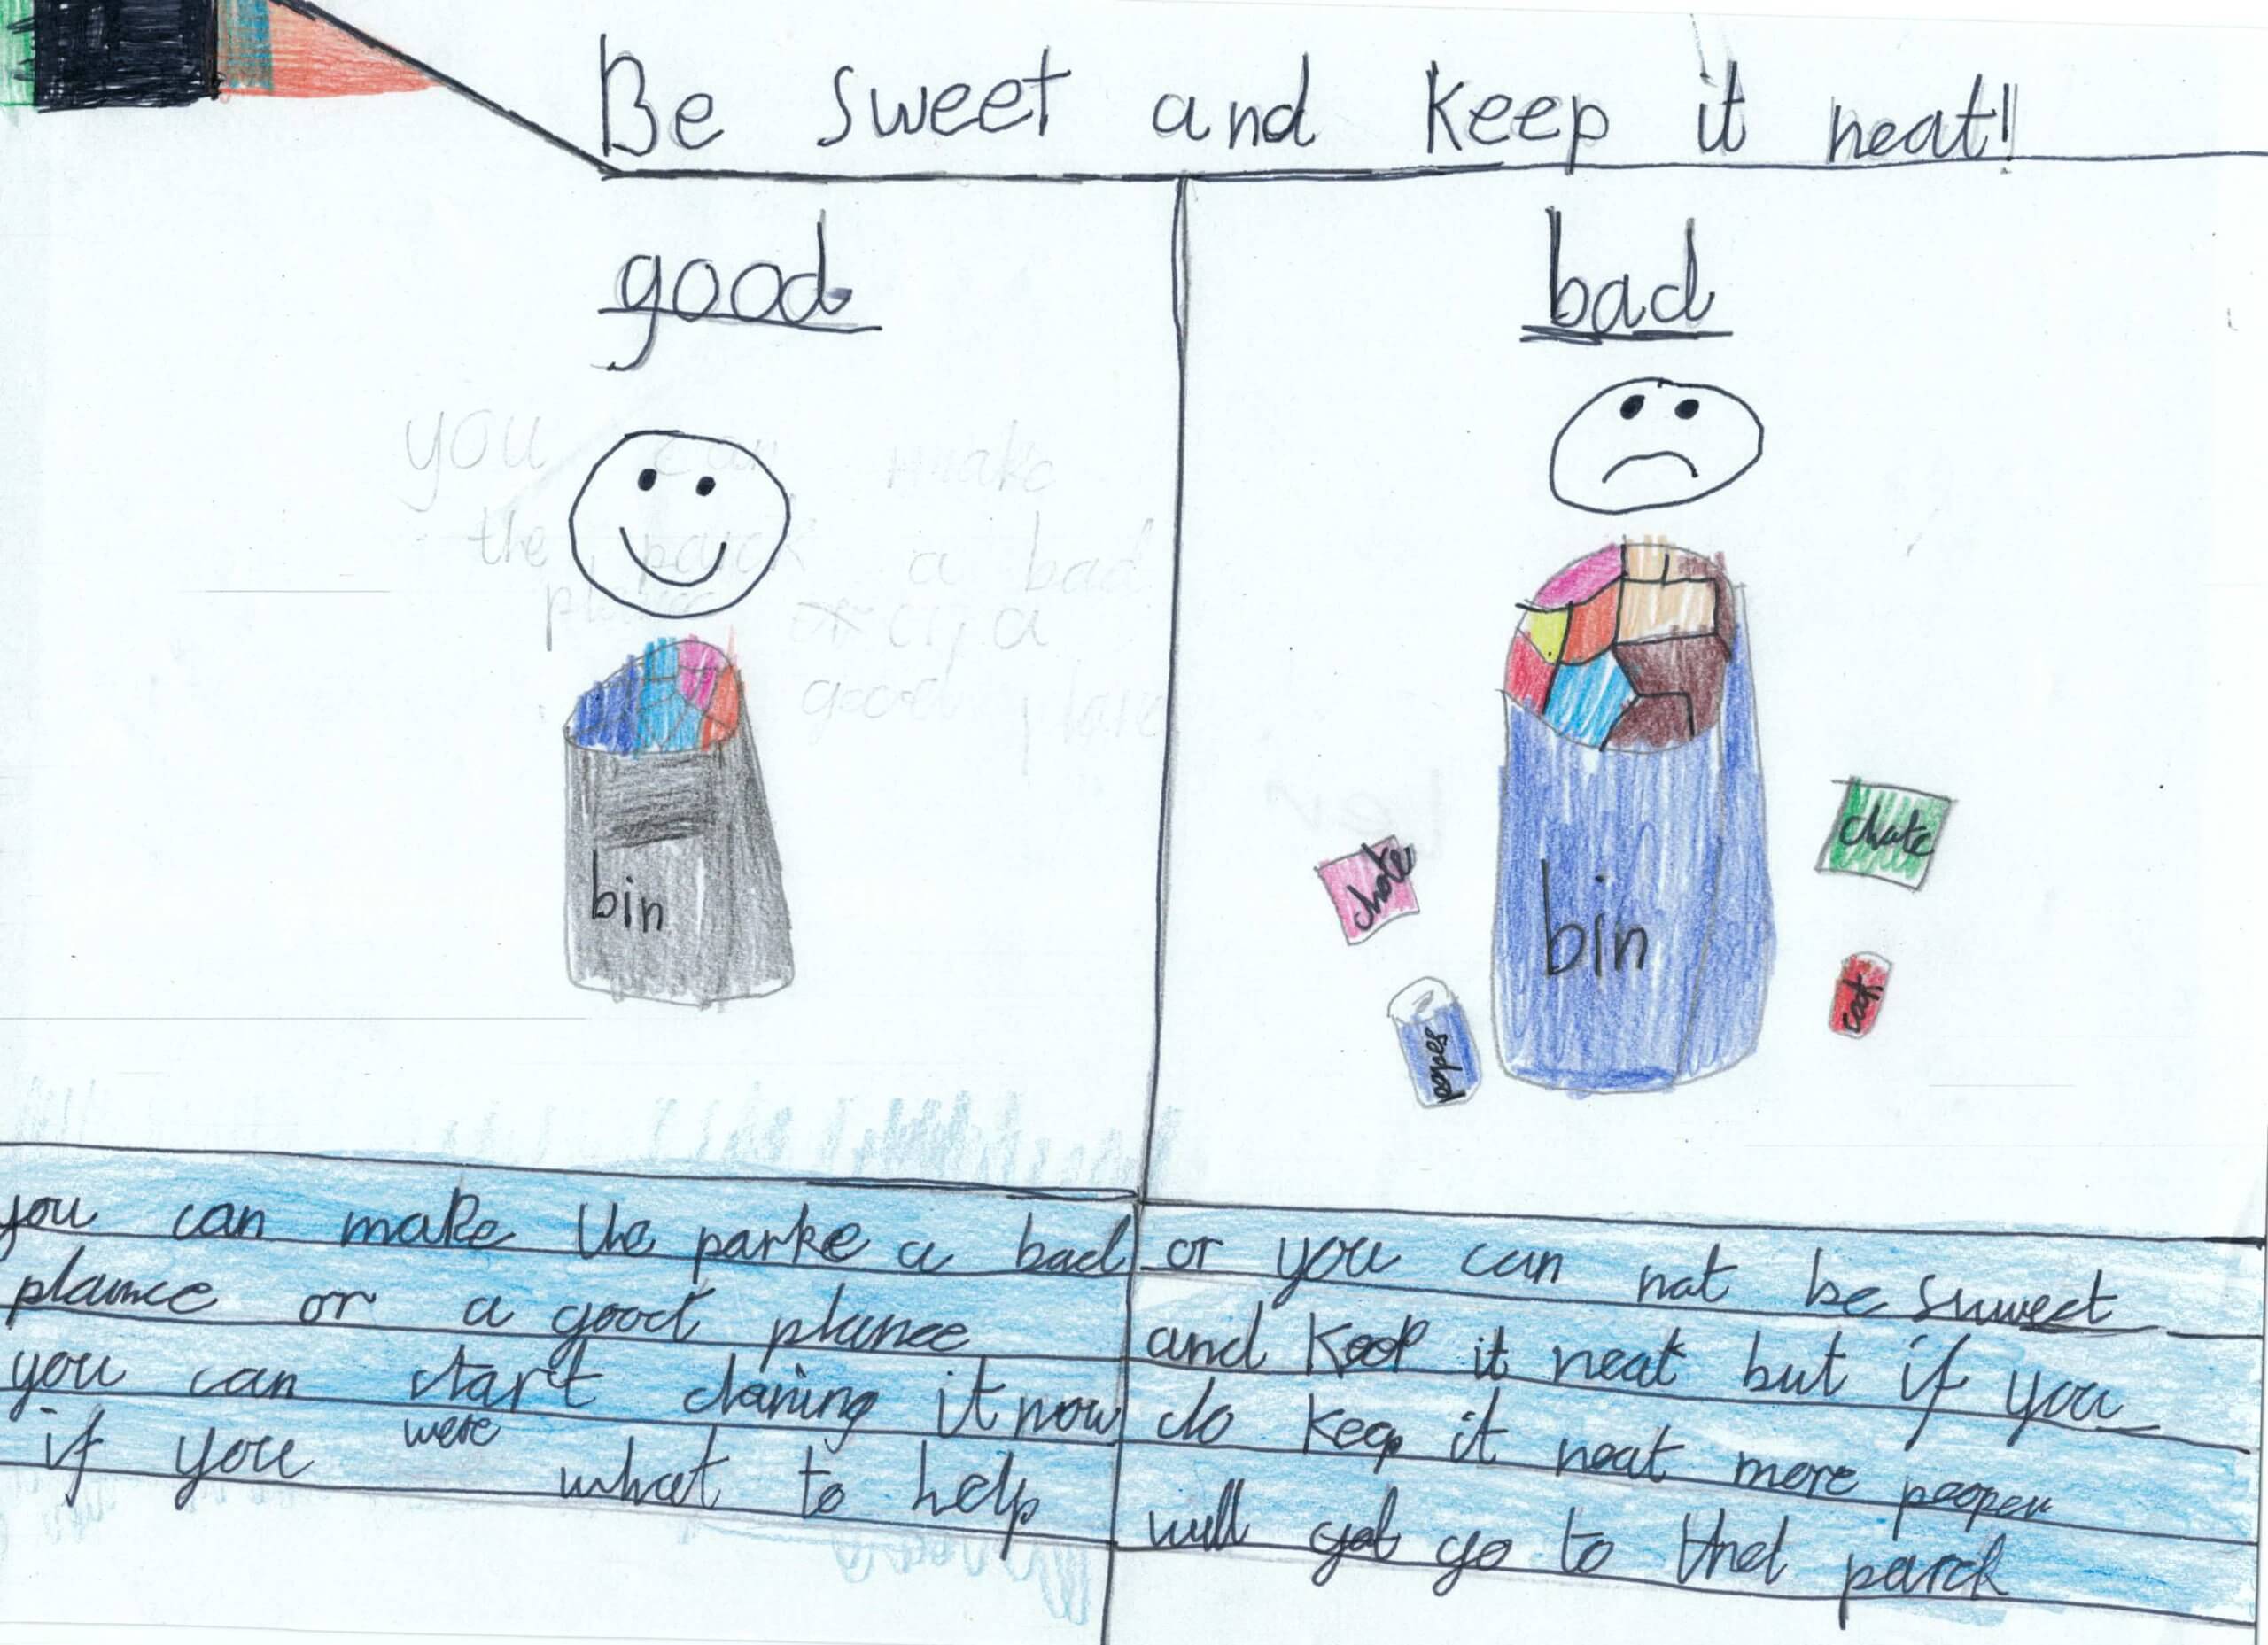 Be sweet and keep it neat!!
good
bad
you can make
the parck a bad
a
good
bin
bin
chote
chote
you can make the parke a bad
plance or a good plance
you can start claning it now
if you were what to help
or you can not be suweet
and keep it neat but if you
do keep it neat more peopeu
will get go to thet parck